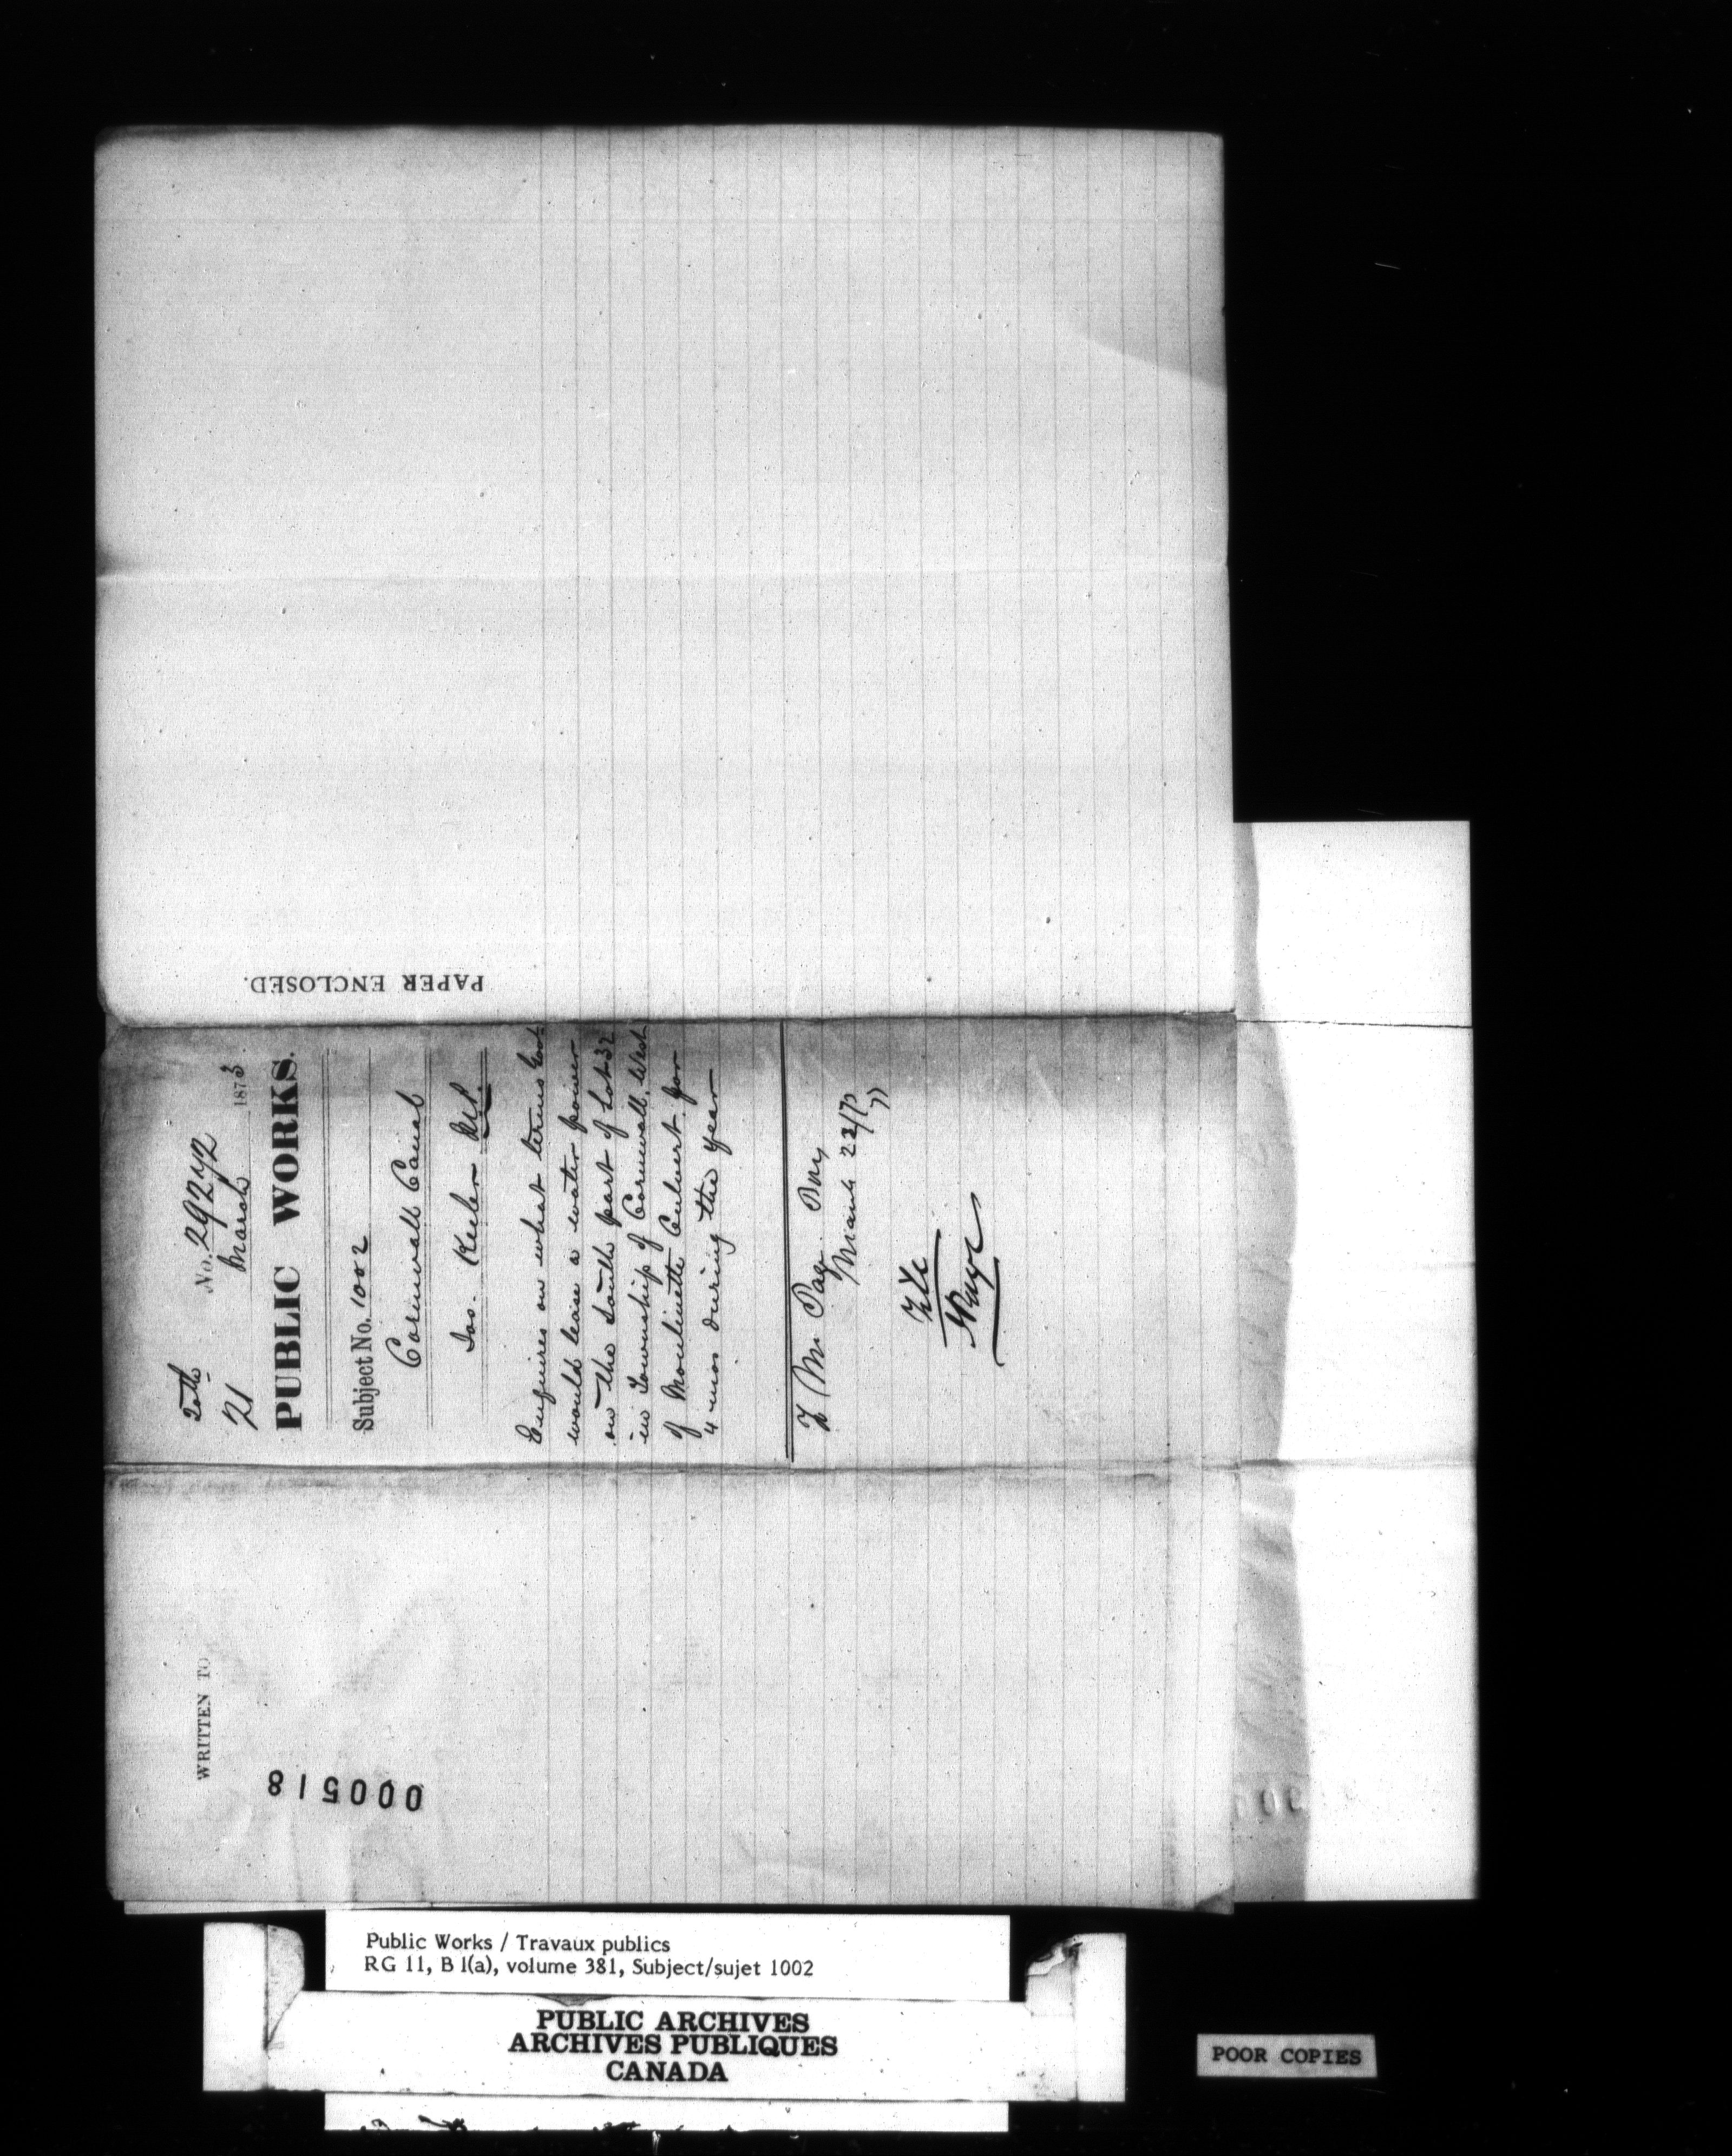 PAPER ENCLOSED.
20th No. 29242
21 March 1873
PUBLIC WORKS.
Subject No. 1002
Cornwall Canal
Jos. Keeler M.P.
Enquires on what terms Govt
would lease a water power
on the South part of Lot 32
in Township of Cornwall, West
of Moulinette Culvert for
4 mos during the year
Mr. Page
March 22/73
File
Page
WRITTEN TO
000518
Public Works / Travaux publics
RG 11, B 1(a), volume 381, Subject/sujet 1002
PUBLIC ARCHIVES
ARCHIVES PUBLIQUES
CANADA
POOR COPIES